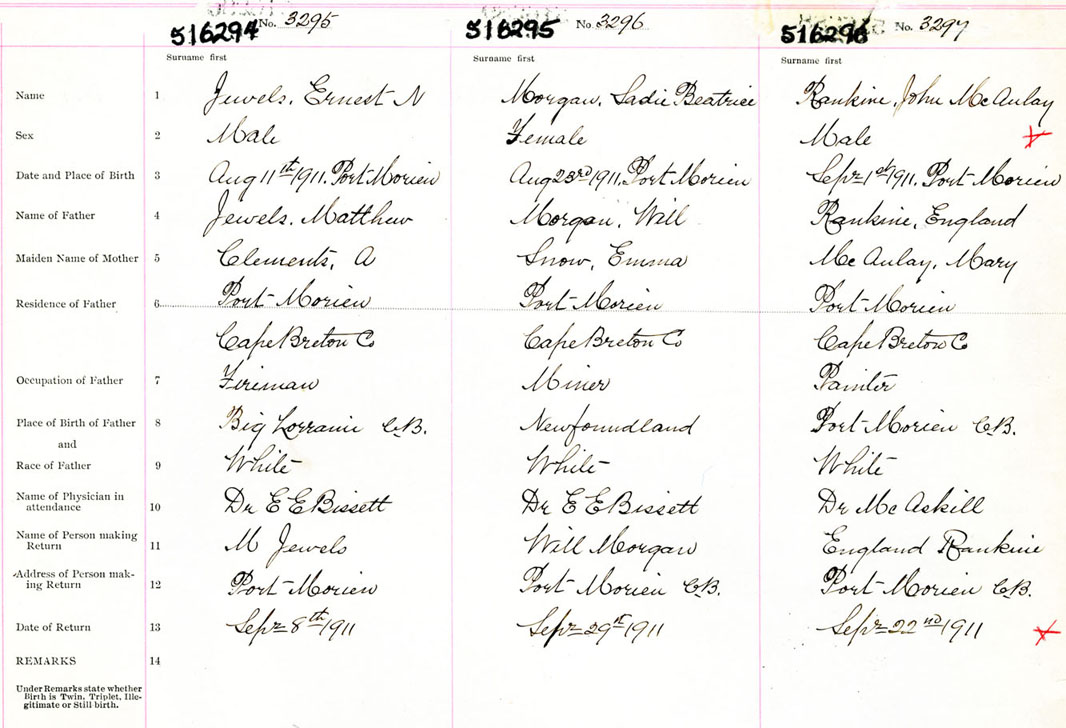 516294 No. 3295 516295 No. 3296 516296 No. 3297
Surname first Surname first Surname first
Name 1 Jewels, Ernest N Morgan, Sadie Beatrice Rankine, John McAulay
Sex 2 Male Female Male
Date and Place of Birth 3 Aug 11th 1911. Port Morien Aug 23rd 1911. Port Morien Sept 1st 1911. Port Morien
Name of Father 4 Jewels, Matthew Morgan, Will Rankine, England
Maiden Name of Mother 5 Clements, A Snow, Emma McAulay, Mary
Residence of Father 6 Port Morien Port Morien Port Morien
Cape Breton Co Cape Breton Co Cape Breton Co
Occupation of Father 7 Fireman Miner Painter
Place of Birth of Father 8 Big Lorraine C.B. Newfoundland Port Morien C.B.
and
Race of Father 9 White White White
Name of Physician in
attendance 10 Dr E E Bissett Dr E E Bissett Dr McAskill
Name of Person making
Return 11 M Jewels Will Morgan England Rankine
Address of Person mak-
ing Return 12 Port Morien Port Morien C.B. Port Morien C.B.
Date of Return 13 Sept 8th 1911 Sept 29st 1911 Sept 22nd 1911
REMARKS 14
Under Remarks state whether
Birth is Twin, Triplet, Ille-
gitimate or Still birth.